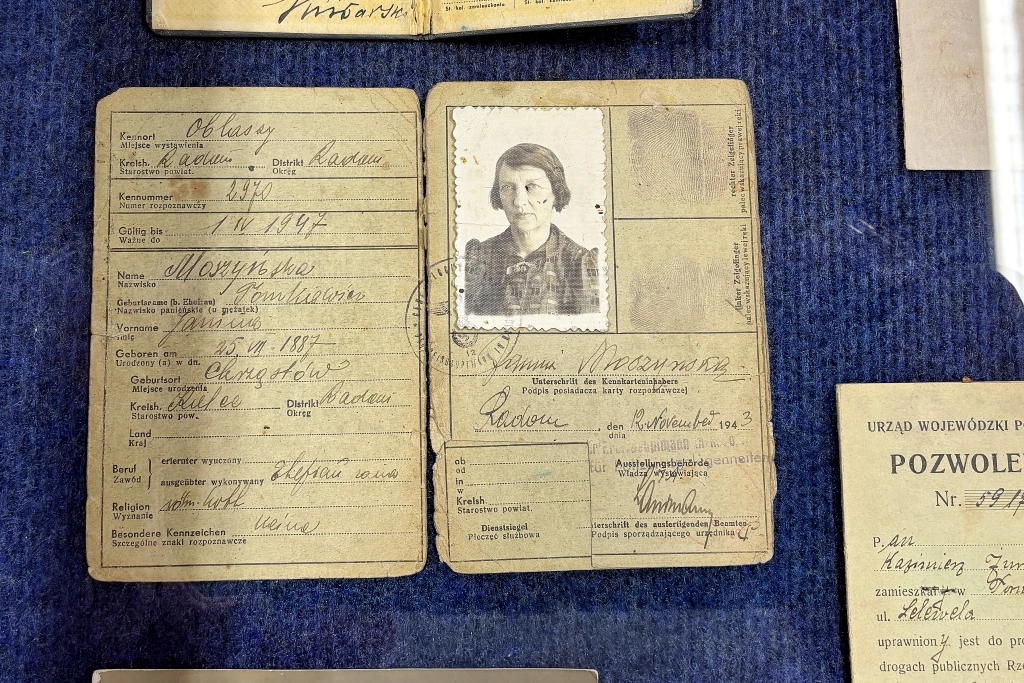 St. kol. zamieszkanie
Kennort
Miejsce wystawienia
Kreish. Radom Distrikt Radom
Starostwo powiat. Okręg
Kennummer 2970
Numer rozpoznawczy
Gültig bis 1 IV 1947
Ważne do
Name Moszyńska
Nazwisko
Geburtsname (b. Ehefrau)
Nazwisko panieńskie (u mężatek)
Vorname Janina
Imię
Geboren am 25. VII. 1887
Urodzony (a) w dn.
Geburtsort Chrząstów
Miejsce urodzenia
Kreish. Kielce Distrikt Radom
Starostwo pow. Okręg
Land
Kraj
Beruf erlernter wyuczony
Zawód ausgeübter wykonywany Ehefrau
Religion röm. kath
Wyznanie
Besondere Kennzeichen keine
Szczególne znaki rozpoznawcze
rechter Zeigefinger
palec wskazujący prawej ręki
linker Zeigefinger
palec wskazujący lewej ręki
Janina Moszyńska
Unterschrift des Kennkarteninhabers
Podpis posiadacza karty rozpoznawczej
Radom, den 12. November 1943
dnia
ab
od
in
w
Kreish
Starostwo powiat.
Dienstsiegel
Pieczęć służbowa
Ausstellungsbehörde
Władza wystawiająca
Unterschrift des ausfertigenden Beamten
Podpis sporządzającego urzędnika
URZĄD WOJEWÓDZKI
POZWOLE
Nr.
Pan
Kazimierz
zamieszkały w
ul. Lelewela
uprawniony jest do
drogach publicznych